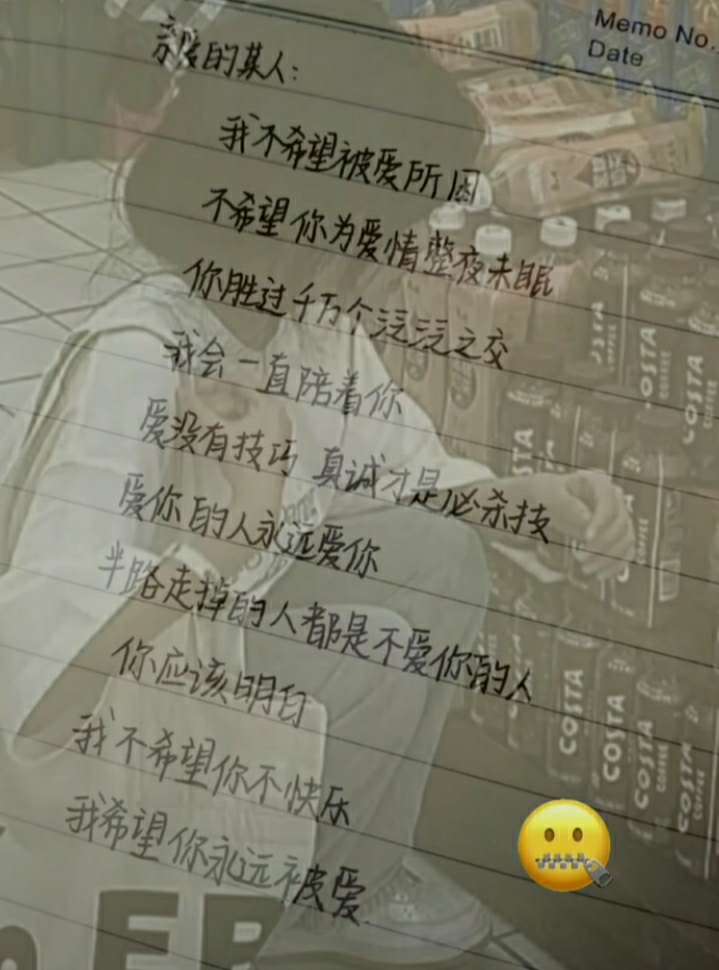 Memo No.
Date
亲爱的某人:
我不希望被爱所困
不希望你为爱情整夜未眠
你胜过千万个泛泛之交
我会一直陪着你
爱没有技巧 真诚才是必杀技
爱你的人永远爱你
半路走掉的人都是不爱你的人
你应该明白
我不希望你不快乐
我希望你永远被爱
COSTA
COFFEE
COSTA
COFFEE
COSTA
COSTA
COSTA
COFFEE
COSTA
COFFEE
ER